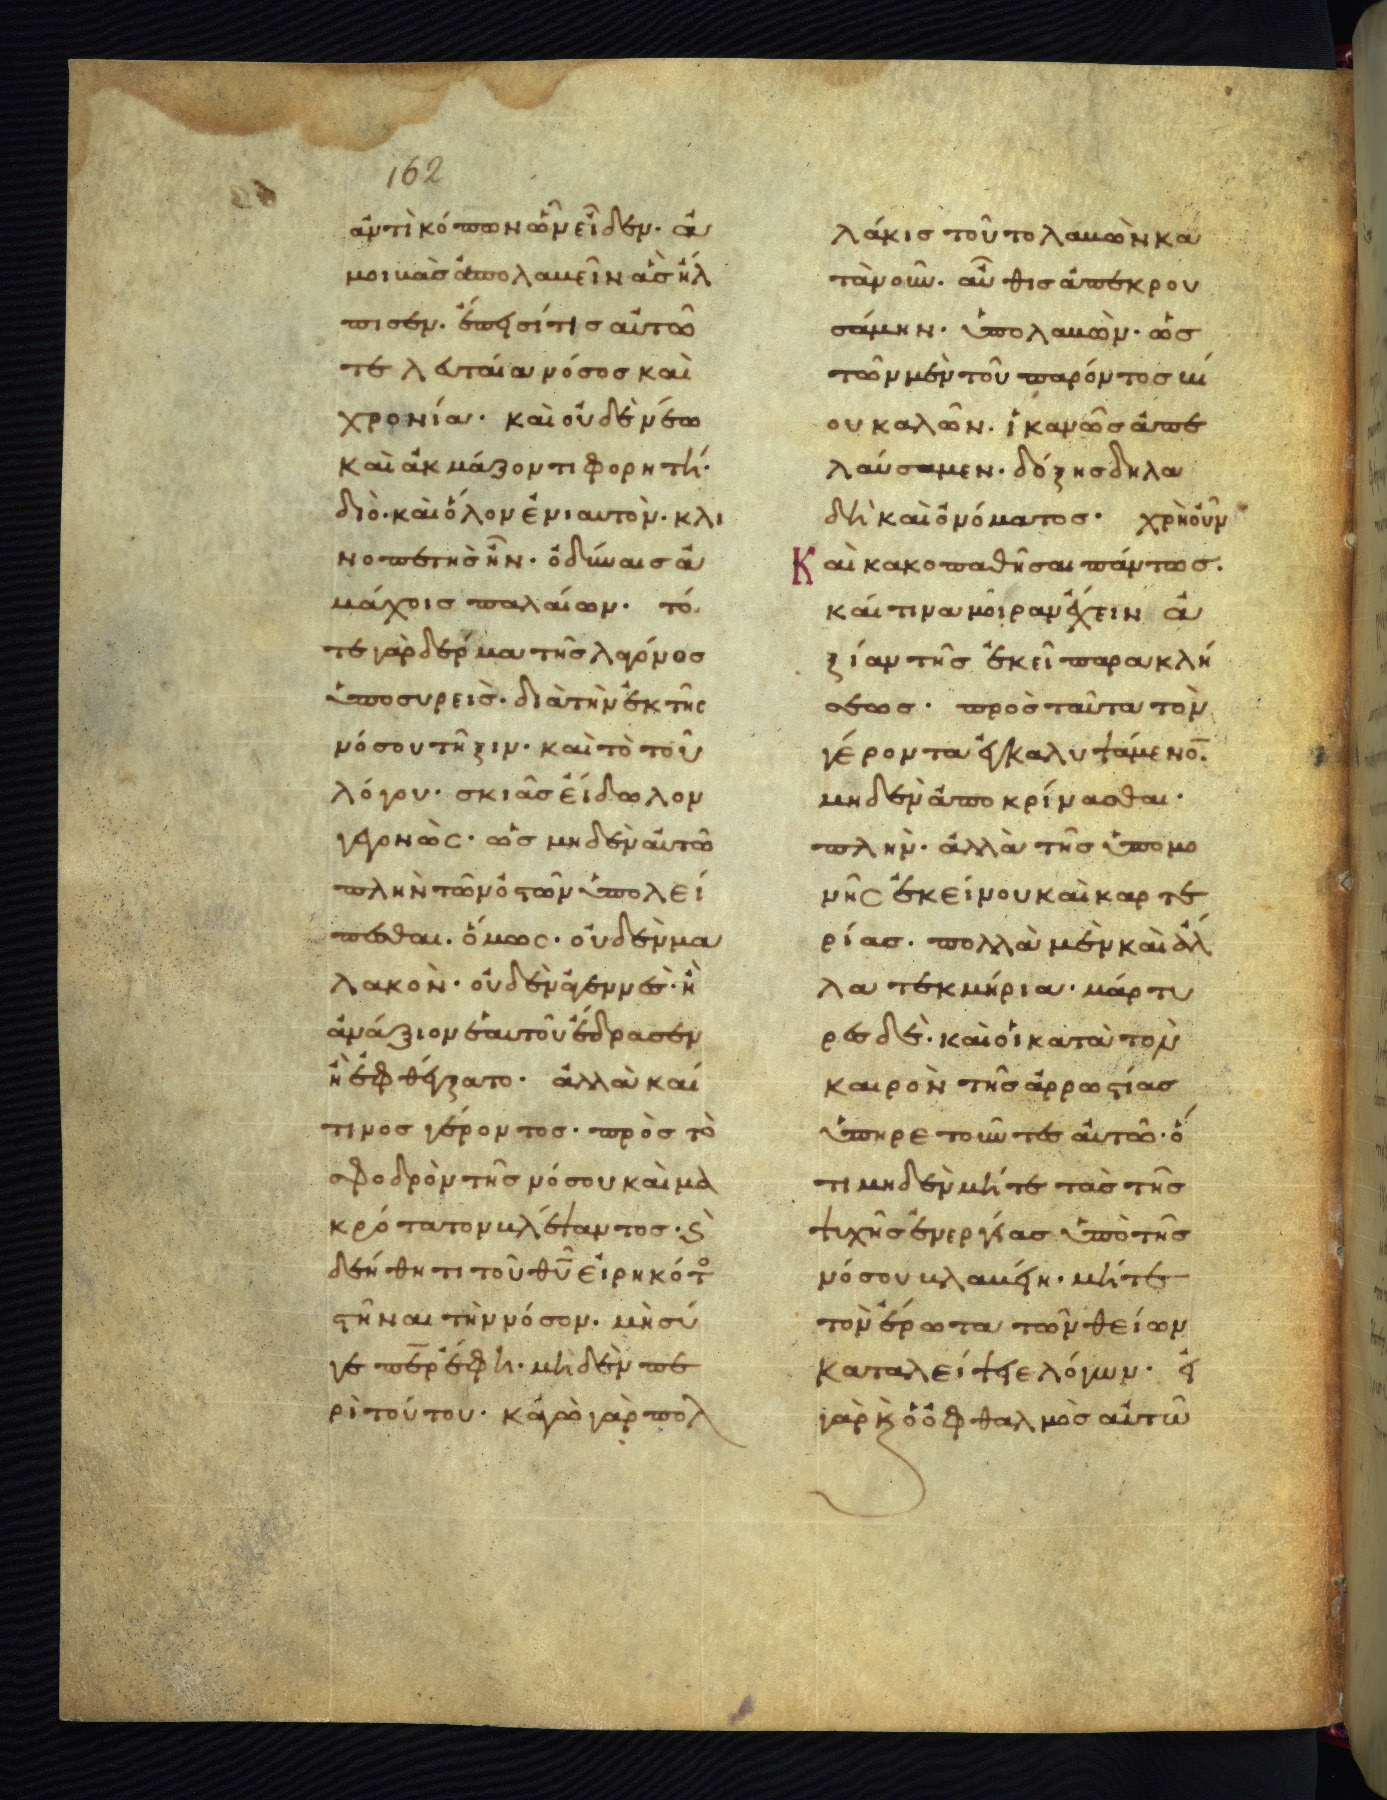 162
ἀντὶ κόπων ὧν εἶδεν· ἀ
μοιβὰς ἀπολαβεῖν ἃς ἤλ
πισεν. ἔπεισί τις αὐτῶ
τελευταία νόσος καὶ
χρονία· καὶ οὐδὲ νέω
καὶ ἀκμάζοντι φορητή·
διὸ· καὶ ὅλον ἐνιαυτὸν· κλι
νοπετὴς ἦν· ὀδύναις ἀ
μάχοις παλαίων· τό
τε γὰρ δέρμα τῆς λεοντος
ὑποσυρεὶς· διὰ τὴν ἐκ τῆς
νόσου τῆξιν· καὶ τὸ τοῦ
λόγου· σκιᾶς εἴδωλον
γεγονὼς· ὡς μηδὲν αὐτῶ
πλὴν τῶν ὀστῶν ὑπολεί
πεσθαι. ὅμως· οὐδὲν μα
λακὸν· οὐδὲν ἀγεννὲς· ἢ
ἀνάξιον ἑαυτοῦ ἔδρασεν
ἢ ἐφθέγξατο· ἀλλὰ καί
τινος γέροντος· πρὸς τὸ
σφοδρὸν τῆς νόσου καὶ μα
κρότατον βλέψαντος· κ(αὶ)
δεήθητι τοῦ θυ εἰρηκότο(ς)
στῆναι τὴν νόσον. μὴ σύ
γε περ ἔφη· μηδὲν πε
ρὶ τούτου· κἀγὼ γὰρ πολ
λάκις τοῦτο λαβὼν κα
τὰ νοῦν. αὖθις ἀπεκρου
σάμην. ὑπολαβὼν· ὡς
τῶν μὲν τοῦ παρόντος βί
ου καλῶν. ἱκανῶς ἀπε
λαύσαμεν. δόξης δηλα
δὴ καὶ ὀνόματος· χρὴ οὖν
Καὶ κακοπαθῆσαι πάντως.
καί τινα μοῖραν ἔχειν ἀ
ξίαν τῆς ἐκεῖ παρακλή
σεως· πρὸς ταῦτα τὸν
γέροντα ἐγκαλυψάμενο̅.
μηδὲν ἀποκρίνασθαι·
πλὴν· ἀλλὰ τῆς ὑπομο
νῆς ἐκείνου καὶ καρτε
ρίας· πολλὰ μὲν καὶ ἄλ
λα τεκμήρια· μάρτυ
ρες δὲ· καὶ οἱ κατὰ τὸν
καιρὸν τῆς ἀρρωστίας
ὑπηρετοῦντες αὐτῶ· ὅ
τι μηδὲν μήτε τὰς τῆς
ψυχῆς ἐνεργείας ὑπὸ τῆς
νόσου βλαβείη· μήτε
τὸν ἔρωτα τῶν θείων
καταλείψειε λόγων· εἰ
γὰρ κ(αὶ) ὁ ὀφθαλμὸς αὐτῶ